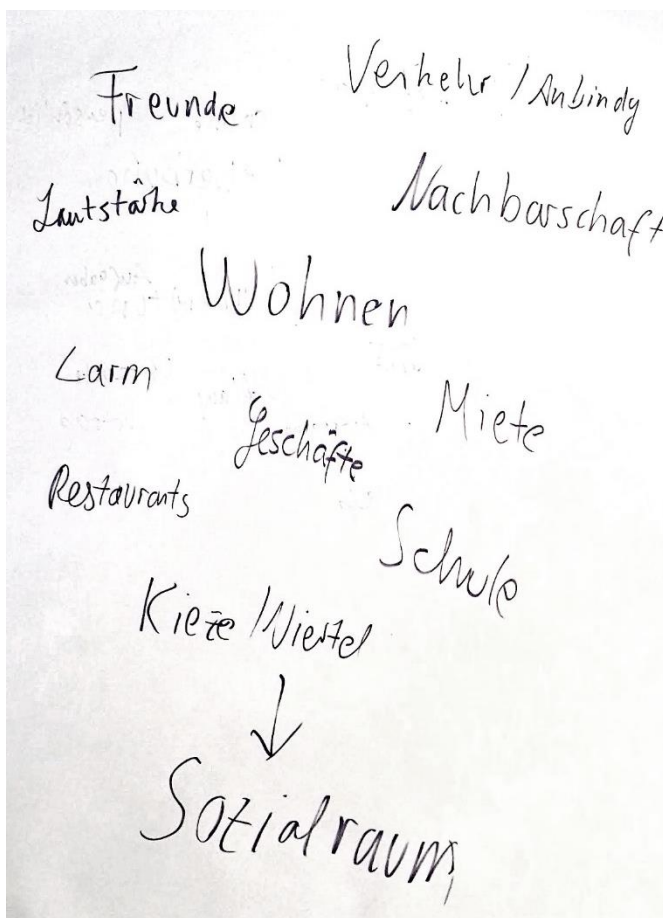 Freunde
Verkehr / Anbindg
Lautstärke
Nachbarschaft
Wohnen
Larm
Geschäfte
Miete
Restaurants
Schule
Kieze / Viertel
↓
Sozialraum